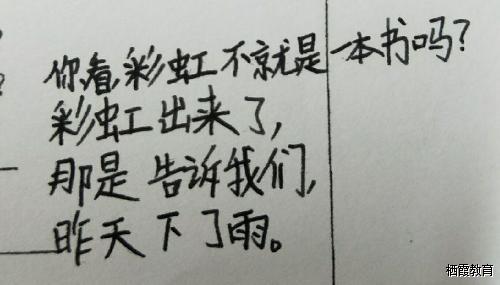 你看,彩虹不就是一本书吗?
彩虹出来了,
那是告诉我们,
昨天下了雨。
栖霞教育